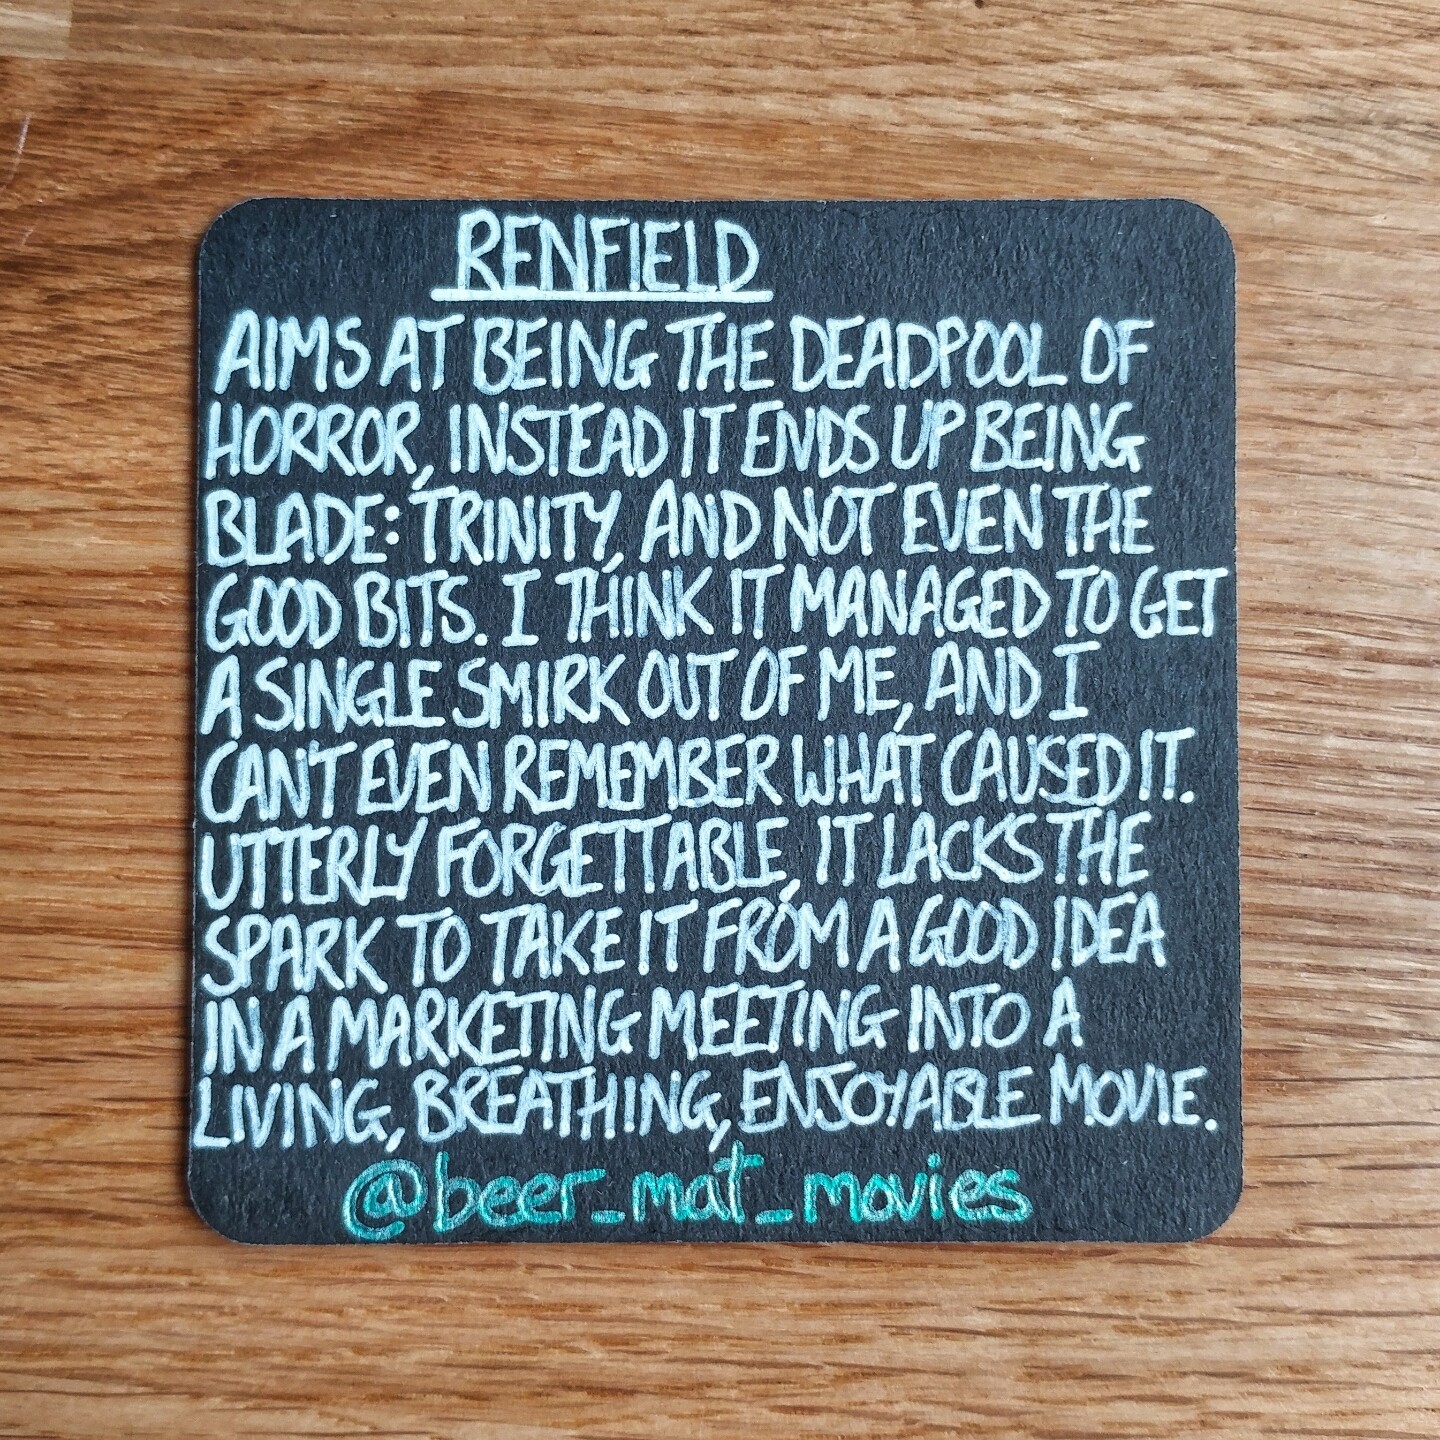 RENFIELD
AIMS AT BEING THE DEADPOOL OF
HORROR, INSTEAD IT ENDS UP BEING
BLADE: TRINITY, AND NOT EVEN THE
GOOD BITS. I THINK IT MANAGED TO GET
A SINGLE SMIRK OUT OF ME, AND I
CAN'T EVEN REMEMBER WHAT CAUSED IT.
UTTERLY FORGETTABLE, IT LACKS THE
SPARK TO TAKE IT FROM A GOOD IDEA
IN A MARKETING MEETING INTO A
LIVING, BREATHING, ENJOYABLE MOVIE.
@beer_mat_movies